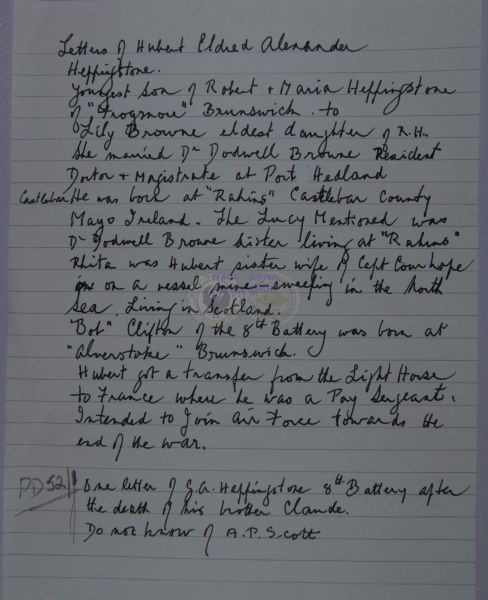 Letters of Hubert Eldred Alexander
Heppingstone.
Youngest son of Robert + Maria Heppingstone
of "Frogmore" Brunswick. to
Lily Browne eldest daughter of R.H..
She married Dr Dodwell Browne Resident
Doctor + Magistrate at Port Hedland
Castlebar He was born at "Rahins" Castlebar County
Mayo Ireland. The Lucy Mentioned was
Dr Dodwell Browne sister living at "Rahins"
Rhita was Hubert sister wife of Capt Courthope
on a vessel mine-sweeping in the North
Sea. Living in Scotland.
"Bot" Clifton of the 8th Battery was born at
"Alverstoke" Brunswick.
Hubert got a transfer from the Light Horse
to France where he was a Pay Sergeant.
Intended to Join Air Force towards the
end of the war.
PD52 One letter of G.A. Heppingstone 8th Battery after
the death of his brother Claude.
Do not know of A.P. Scott